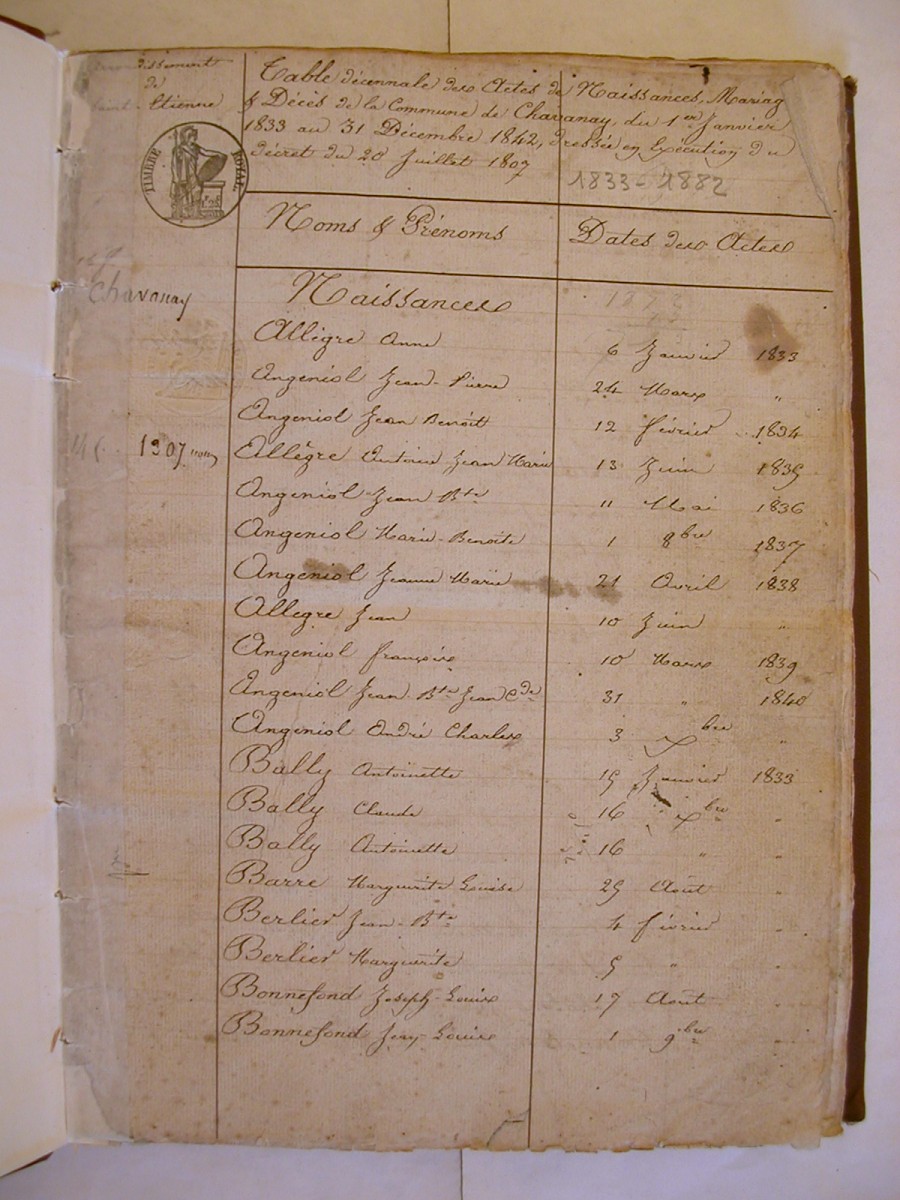 Arrondissement
de
Saint-Etienne
Table décennale des Actes de Naissances, Mariag
& Décès de la Commune de Chavanay, du 1er Janvier
1833 au 31 Décembre 1842, dressée en Exécution du
décret du 20 Juillet 1807
1833-1882
TIMBRE ROYAL
Noms & Prénoms Dates des Actes
Chavanay
Naissances
Allègre Anne 6 Janvier 1833
Angeniol Jean-Pierre 24 Mars "
Angeniol Jean Benoît 12 février 1834
1907
Allègre Antoine Jean Marie 13 Juin 1835
Angeniol Jean Bte 11 Mai 1836
Angeniol Marie-Benoîte 1 8bre 1837
Angeniol Jeanne Marie 21 Avril 1838
Allegre Jean 10 Juin "
Angeniol françoise 10 Mars 1839
Angeniol Jean-Bte Jean Cde 31 " 1840
Angeniol André Charles 3 Xbre "
Bally Antoinette 15 Janvier 1833
Bally Claude 16 Xbre "
Bally Antoinette 16 " "
Barre Marguerite Louise 25 Août "
Berlier Jean-Bte 4 février "
Berlier Marguerite 5 " "
Bonnefond Joseph-Louis 17 Août "
Bonnefond Jean-Louis 1 9bre "